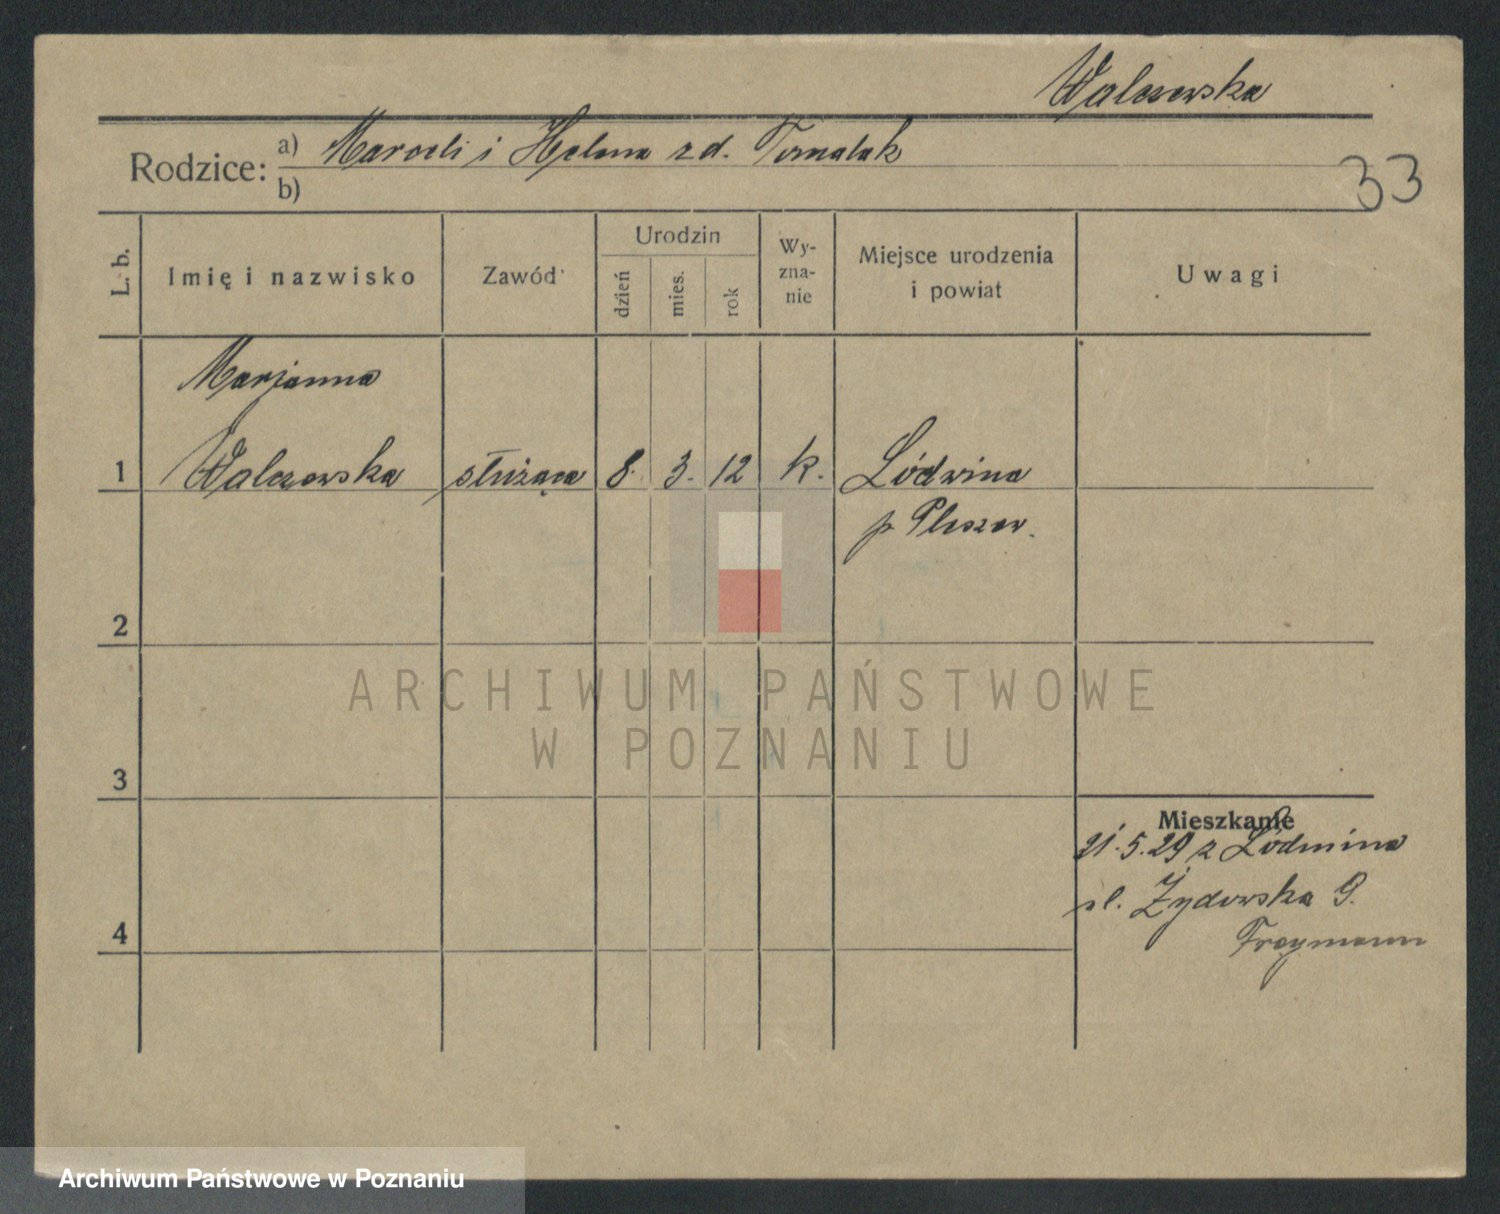 Walczewska
Rodzice: a) Marceli i Helena z d. Tomalak
b)
33
L. b.
Imię i nazwisko
Zawód
Urodzin
dzień
mies.
rok
Wy-
zna-
nie
Miejsce urodzenia
i powiat
Uwagi
Marjanna
1 Walczewska służąca 8. 3. 12 k. Lódwina
p Pleszew.
2
ARCHIWUM PAŃSTWOWE
W POZNANIU
3
Mieszkanie
21.5.29 z Lódwina
ul. Żydowska 9.
4
Archiwum Państwowe w Poznaniu